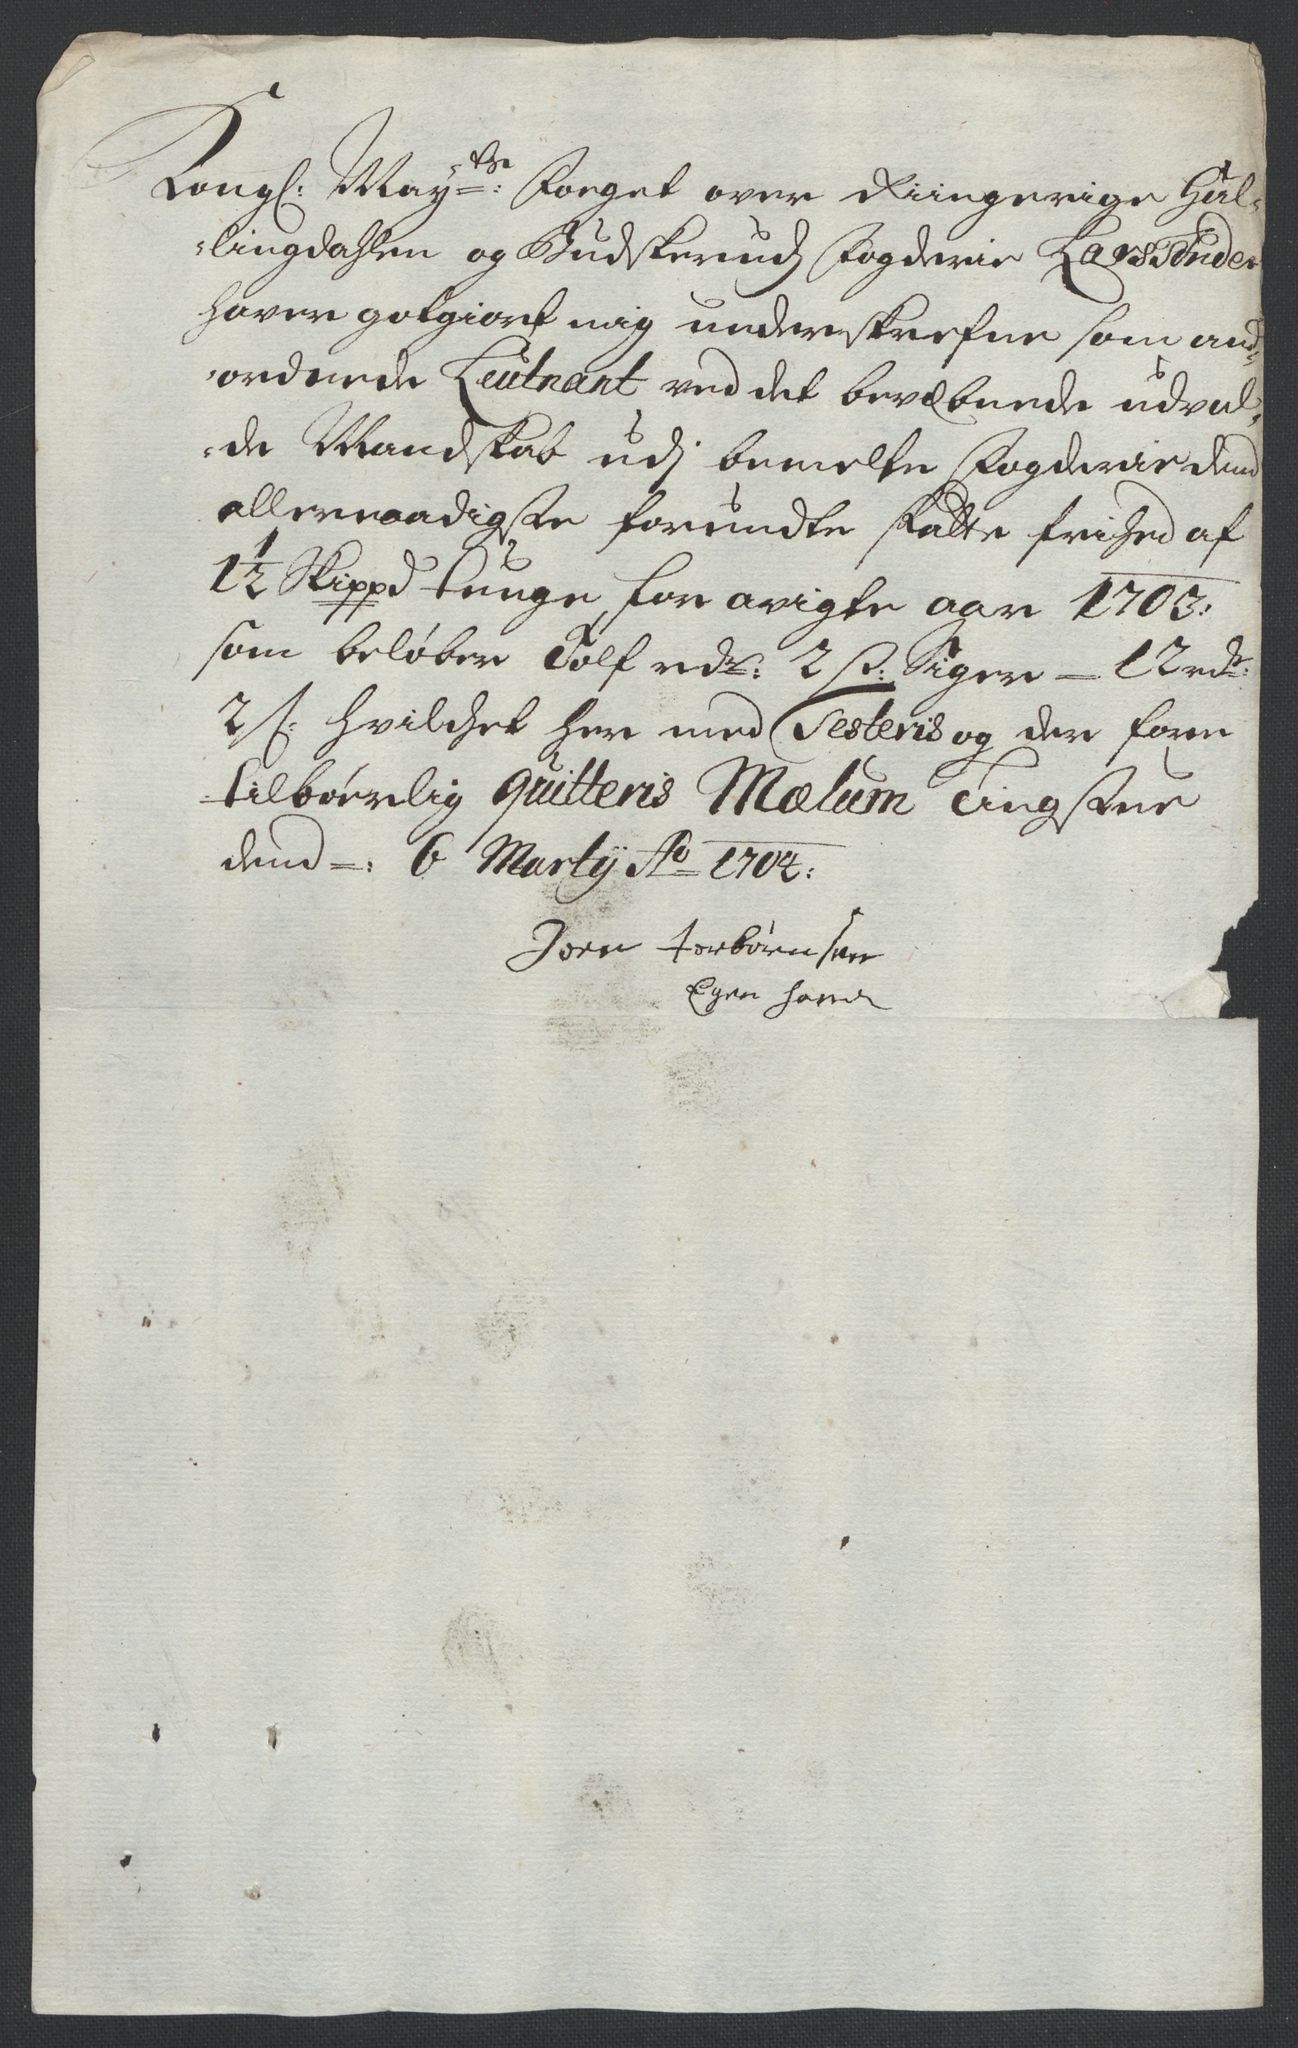 Kongl: May:ts: Foeget over Ringerige Hal-
-lingdahlen og Budskerudz Fogderie Lars Tønder
haver gotgiort mig underskrefne som and-
-ordnede Leutnant ved det bevæbnede udval-
-de Mandskab udj bemelte Fogderie dend
allernaadigste forundte skatte frihed af
1½ Skippd tunge, for avigte aar 1703:
som beløber Tolf rdr: 2 s: Siger — 12 rdr:
2 s: hvilchet her med Testeris og der fore
tilbørlig quitteris Mælum Tingstue
dend: 6 Martij Ao 1704:
Joen torbørnsen
Egen hand